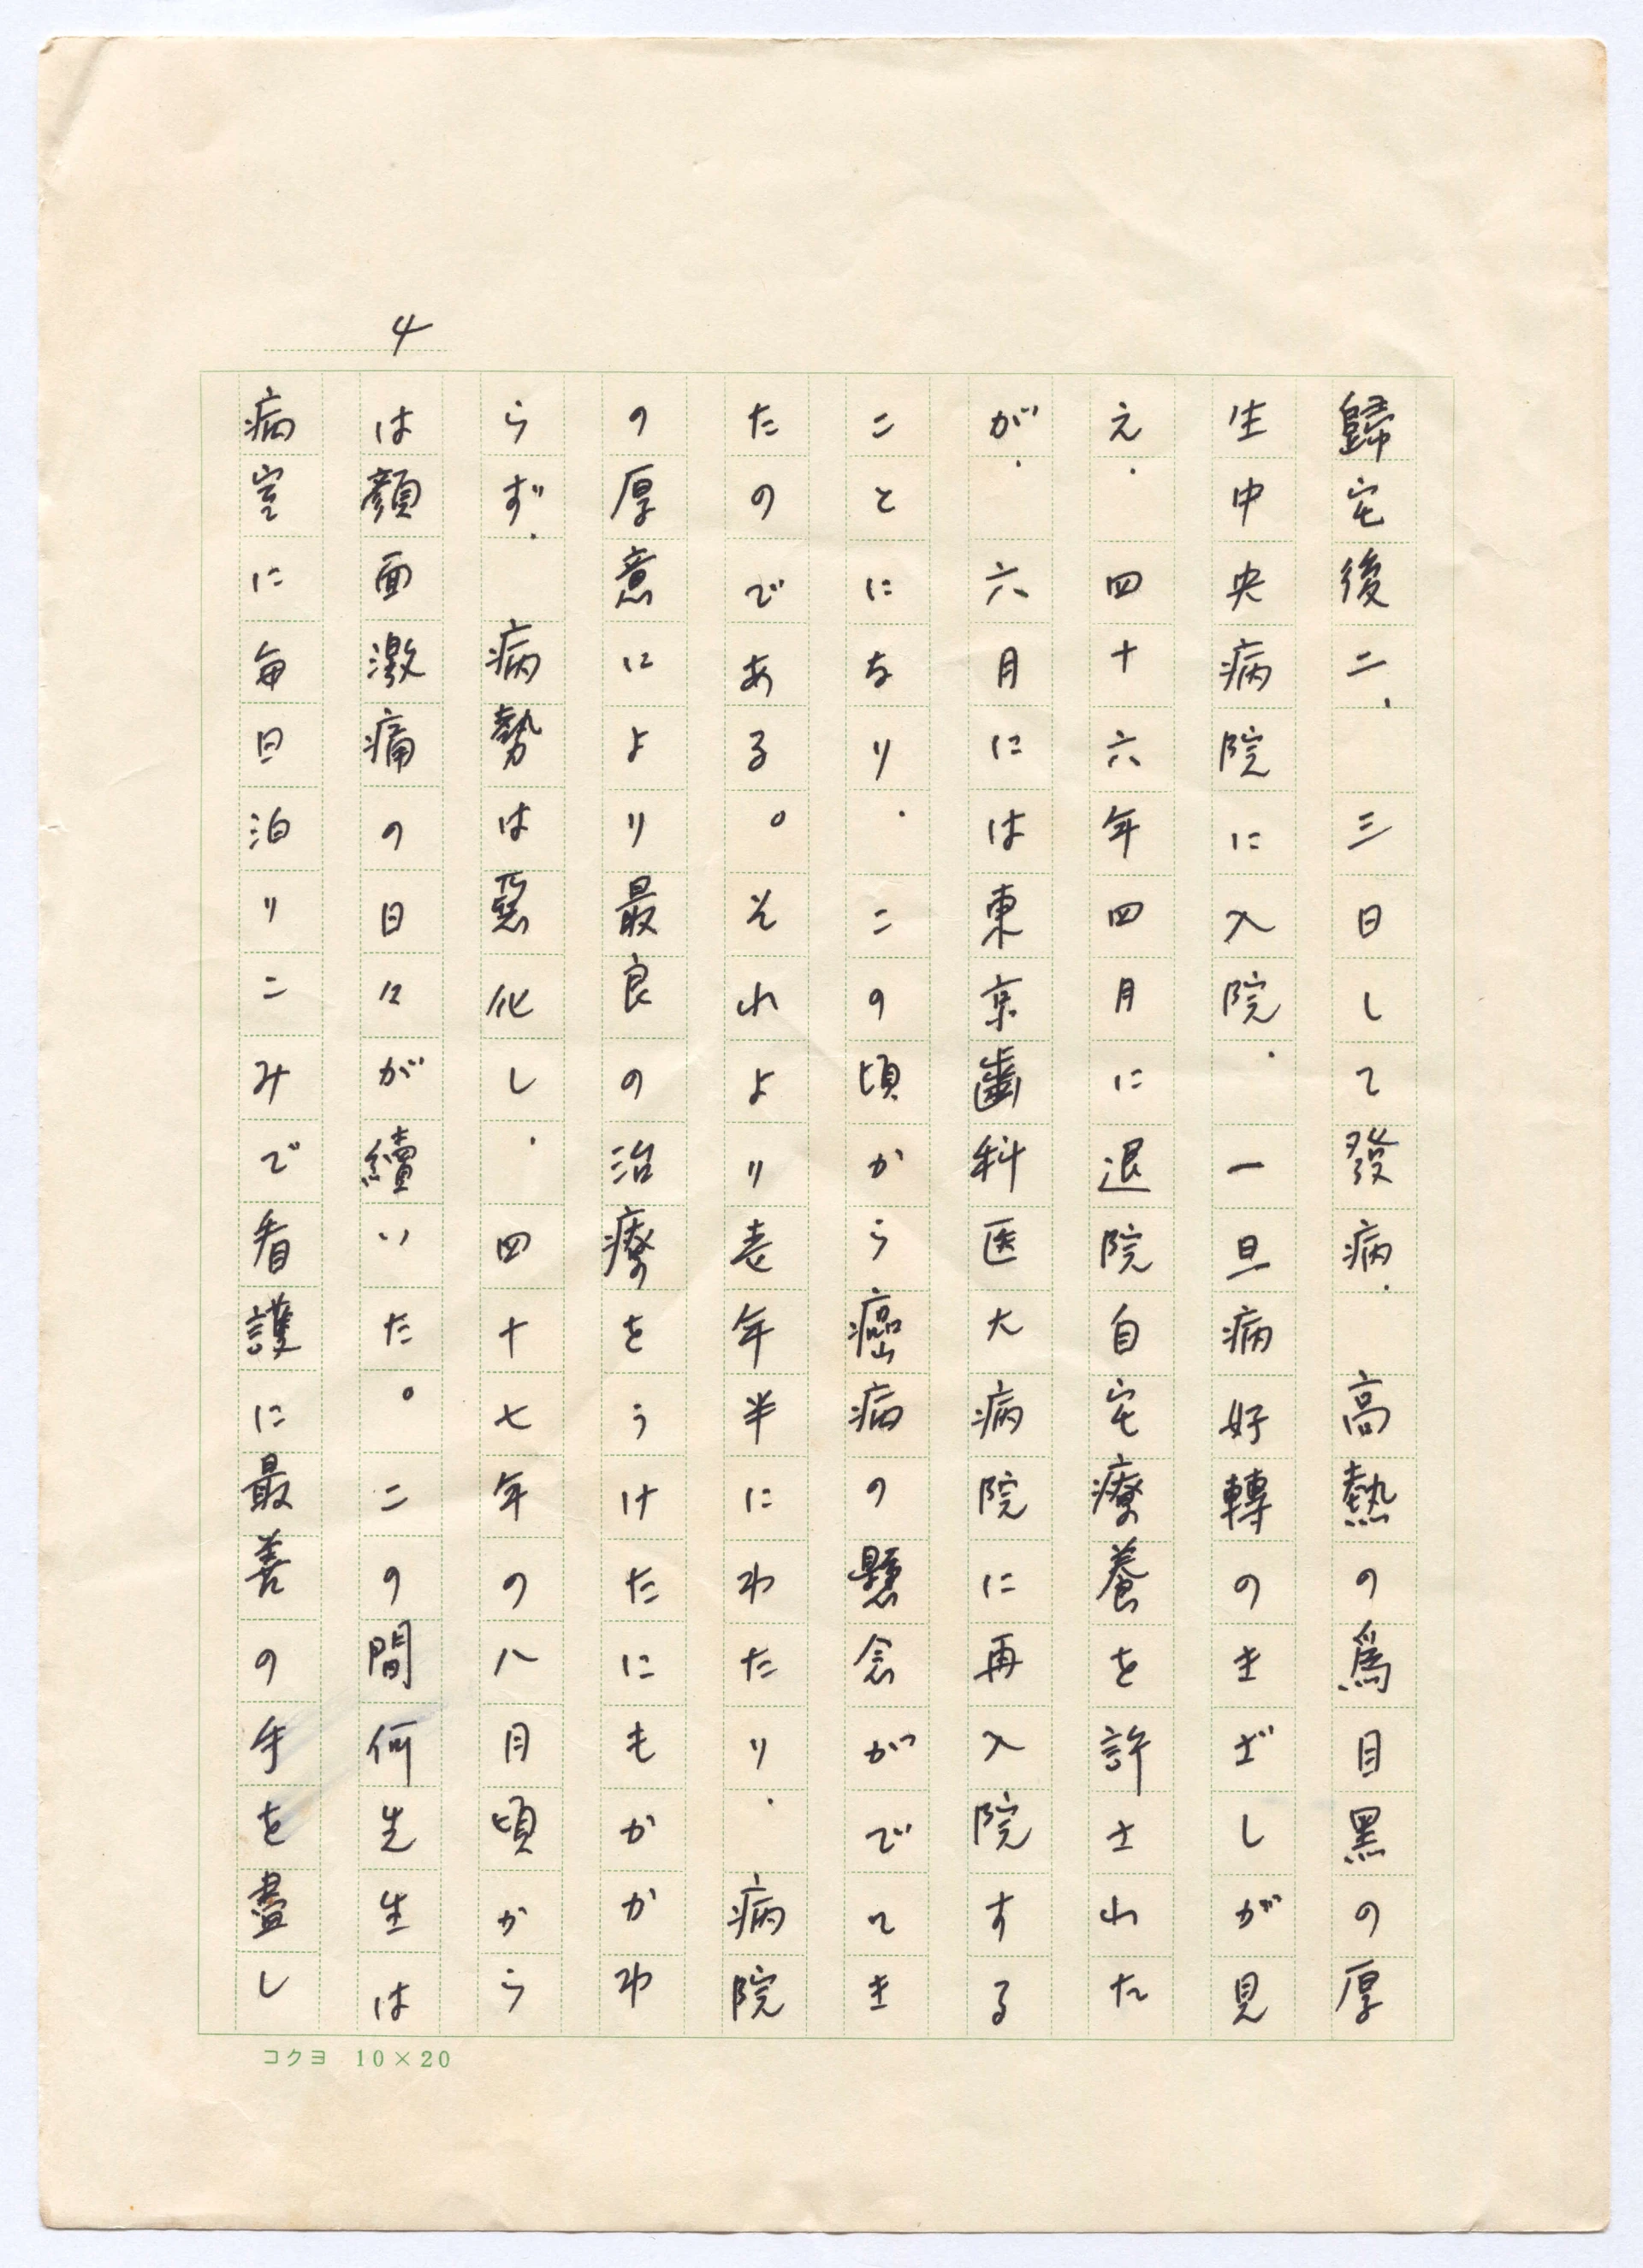 4
歸宅後二、三日して發病、高熱の爲目黑の厚
生中央病院に入院、一旦病好轉のきざしが見
え、四十六年四月に退院自宅療養を許された
が、六月には東京齒科医大病院に再入院する
ことになり、この頃から癌病の懸念がでてき
たのである。それより壱年半にわたり、病院
の厚意により最良の治療をうけたにもかかわ
らず、病勢は惡化し、四十七年の八月頃から
は顏面激痛の日々が續いた。この間何先生は
病室に毎日泊りこみで看護に最善の手を盡し
コクヨ 10×20